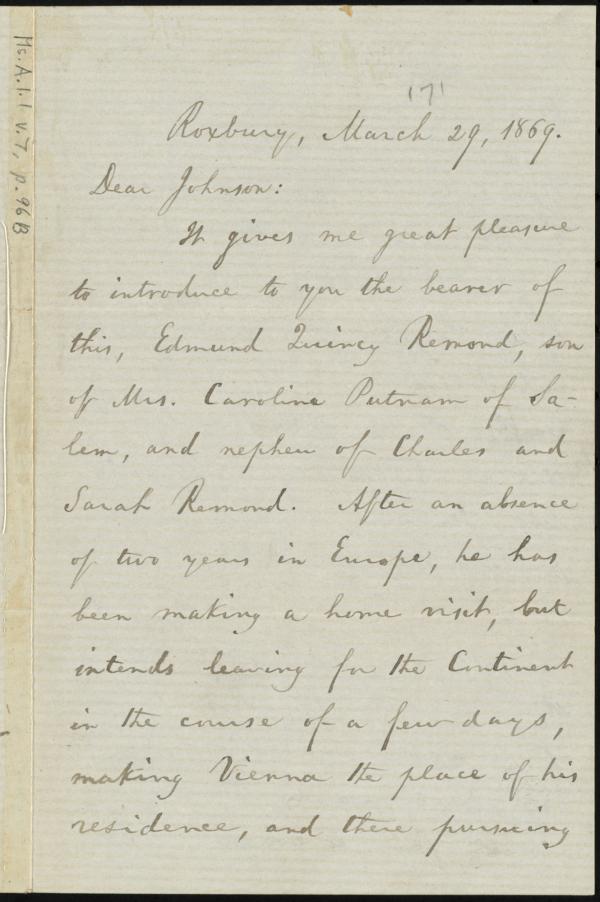 Ms. A. 1. 1 v. 7, p. 96B
171
Roxbury, March 29, 1869.
Dear Johnson:
It gives me great pleasure
to introduce to you the bearer of
this, Edmund Quincy Remond, son
of Mrs. Caroline Putnam of Sa-
lem, and nephew of Charles and
Sarah Remond. After an absence
of two years in Europe, he has
been making a home visit, but
intends leaving for the Continent
in the course of a few days,
making Vienna the place of his
residence, and there pursuing